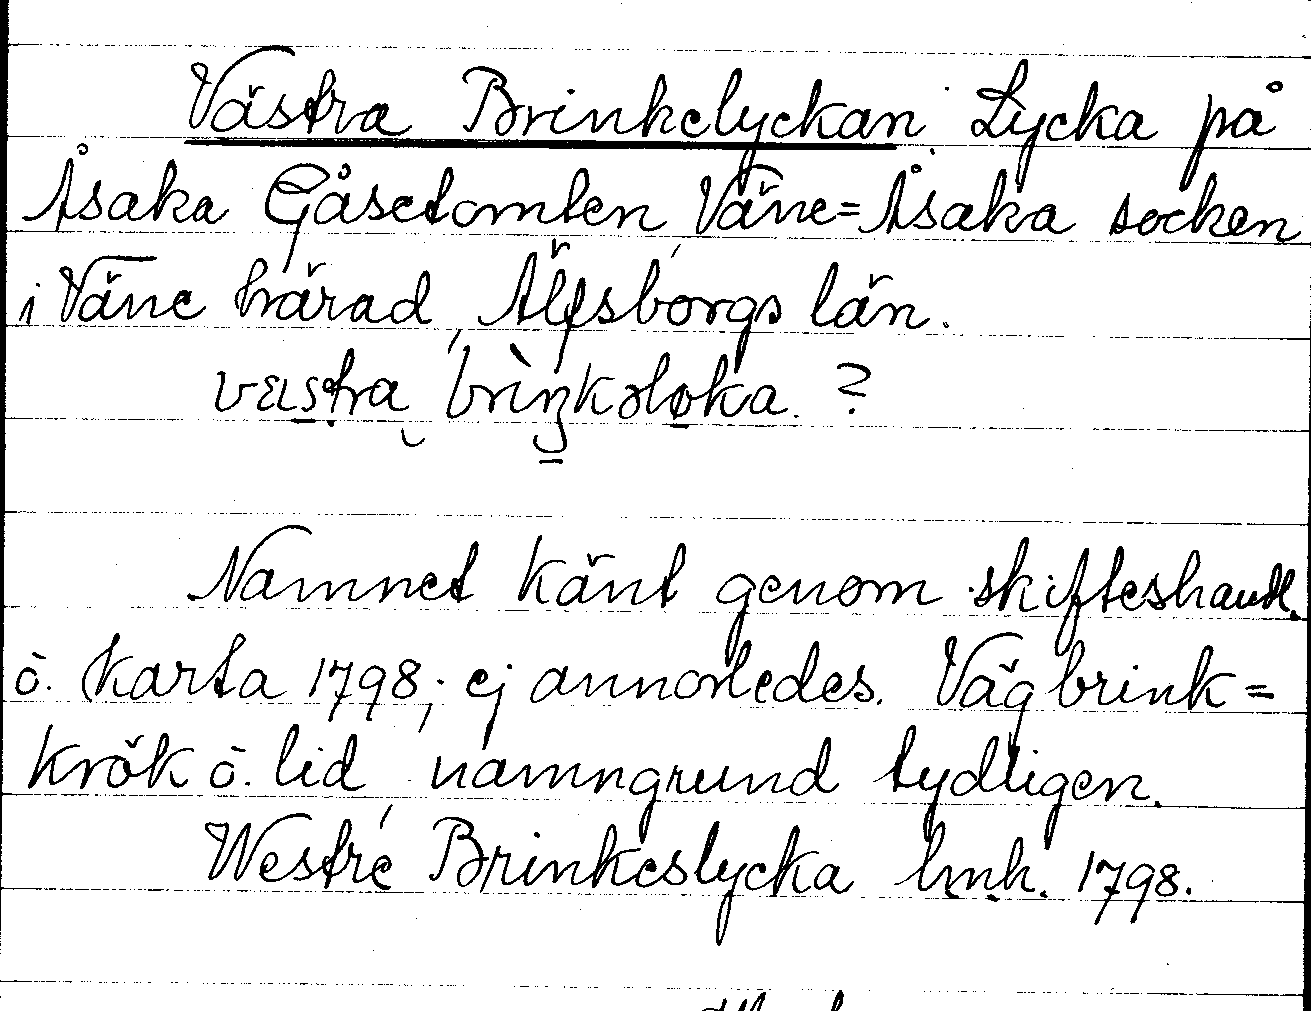 Västra Brinkelyckan. Lycka på
Åsaka Gåsetomten, Väne=Åsaka socken
i Väne härad, Älfsborgs län.
vɛstra brìŋkəløka. ?
Namnet känt genom skifteshandl.
o. karta 1798; ej annorledes. Väg brink=
krök o. lid, namngrund tydligen.
Westre Brinkeslycka lmh. 1798.